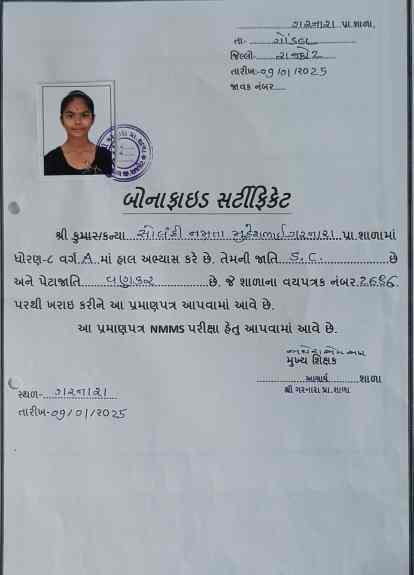 ગરનારા પ્રા.શાળા,
તા- ગોંડલ
જિલ્લો- રાજકોટ
તારીખ:-09/01/2025
જાવક નંબર
બોનાફાઇડ સર્ટીફિકેટ
શ્રી કુમાર/કન્યા સોલંકી નમ્રતા મુકેશભાઈ ગરનારા પ્રા શાળામાં
ધોરણ-૮ વર્ગ A માં હાલ અભ્યાસ કરે છે. તેમની જાતિ S.C. છે
અને પેટાજાતિ વણકર છે. જે શાળાના વયપત્રક નંબર 2686
પરથી ખરાઇ કરીને આ પ્રમાણપત્ર આપવામાં આવે છે.
આ પ્રમાણપત્ર NMMS પરીક્ષા હેતુ આપવામાં આવે છે.
મુખ્ય શિક્ષક
આચાર્ય શાળા
શ્રી ગરનારા પ્રા.શાળા
સ્થળ- ગરનારા
તારીખ-09/01/2025